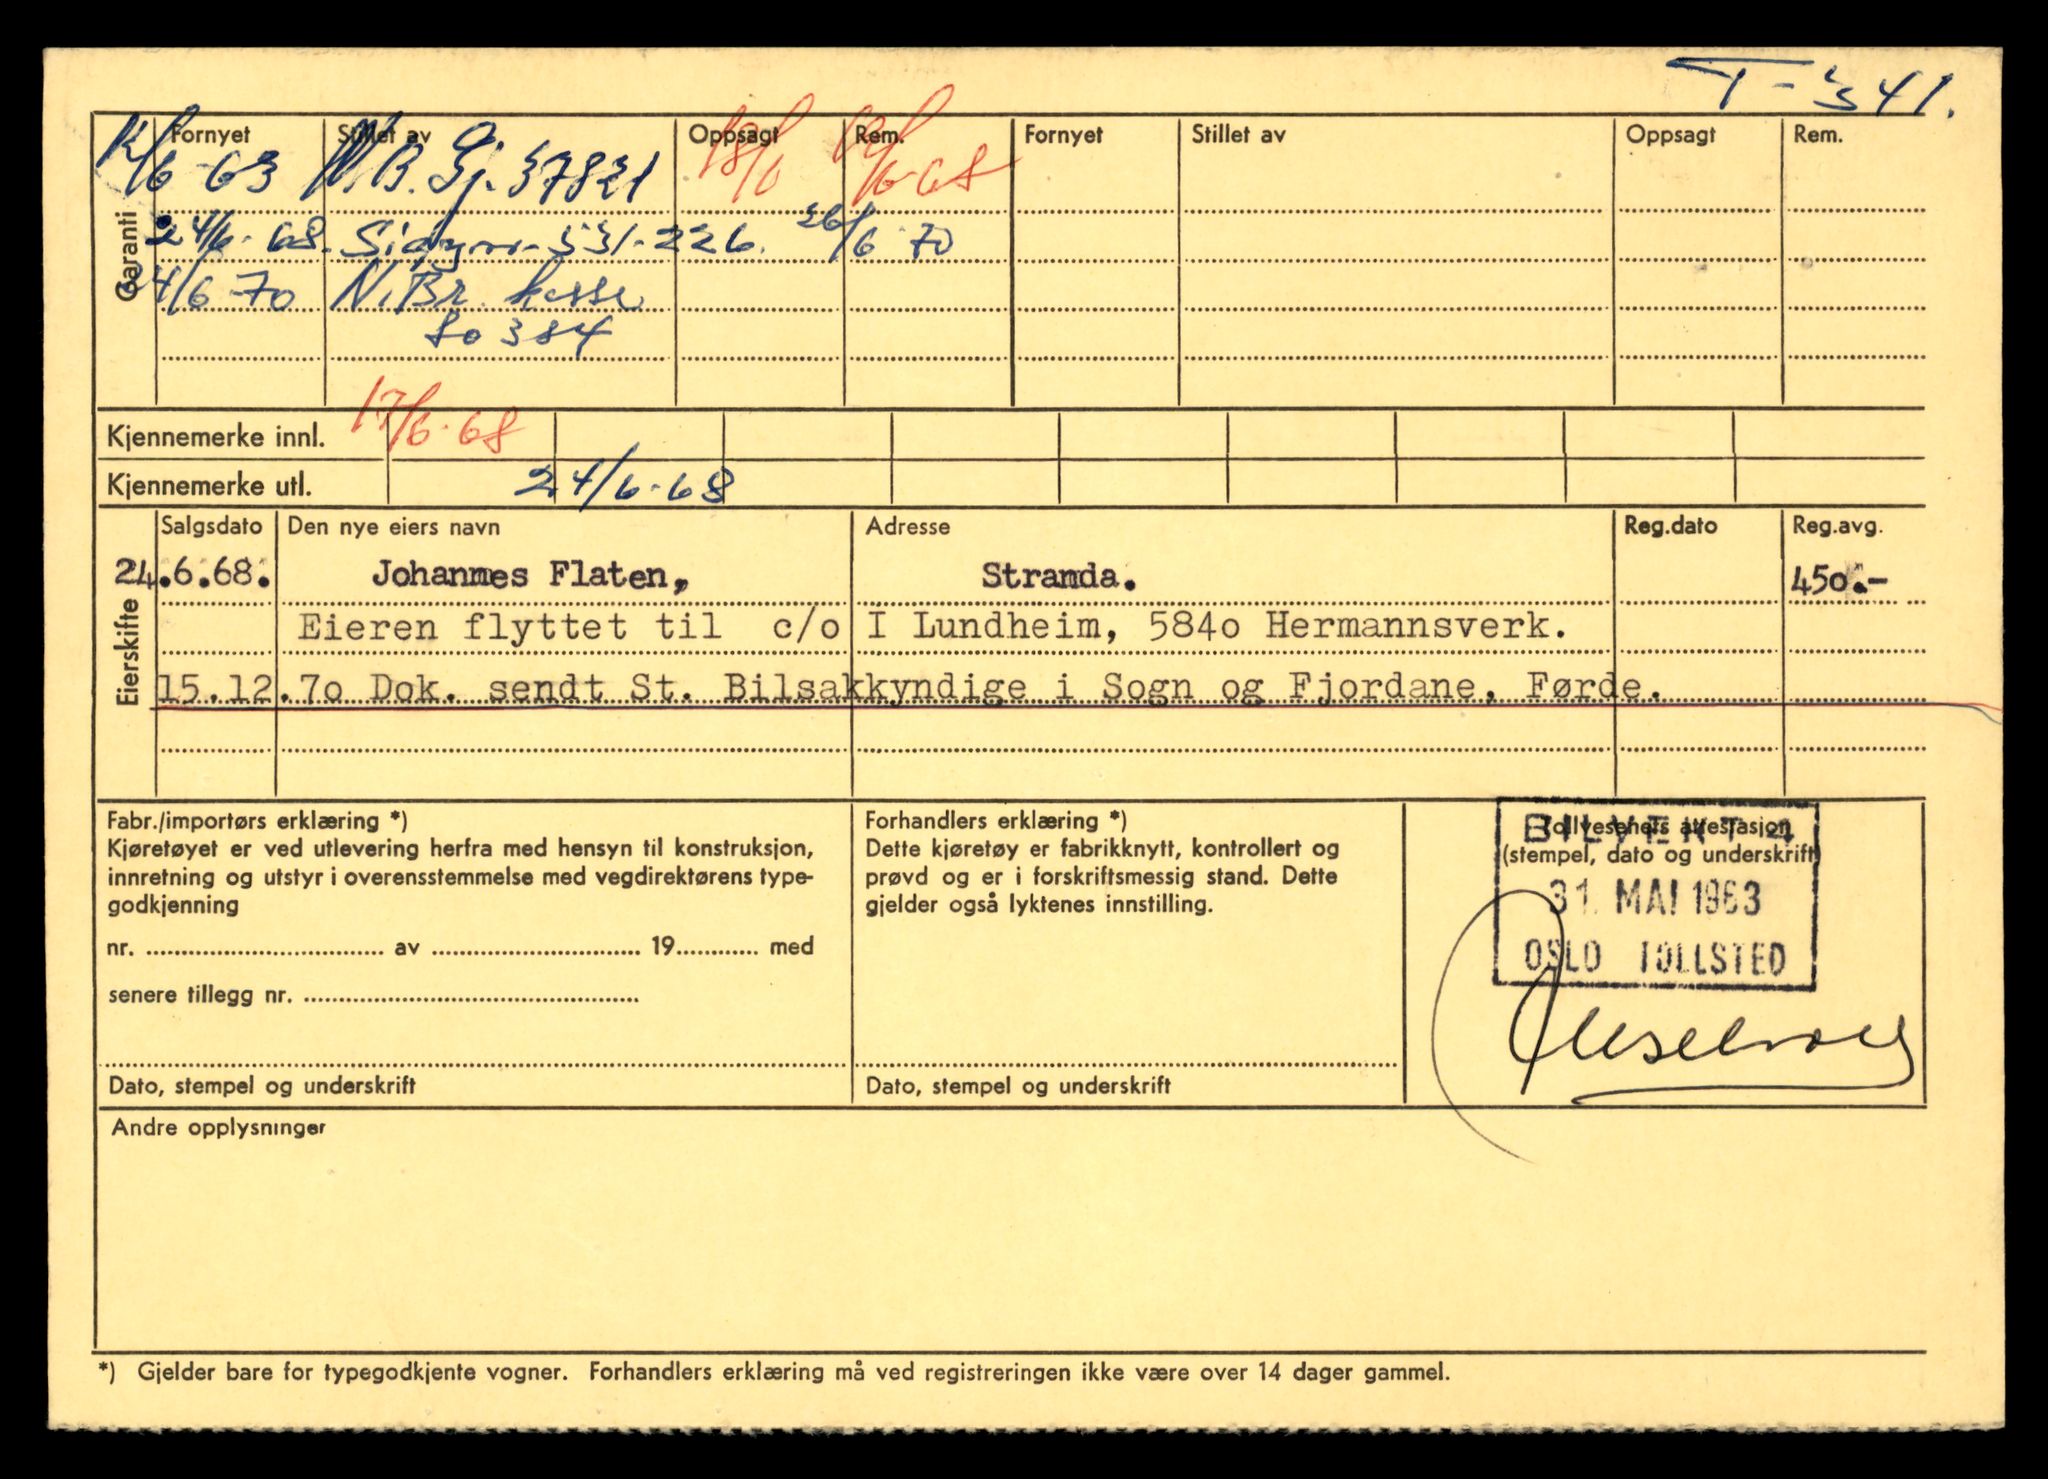 T-341.
Garanti
Fornyet Stillet av Oppsagt Rem. Fornyet Stillet av Oppsagt Rem.
12/6-63 N.B. Gj. 37821 18/6 19/6-68
24/6-68. Sigyn 531-226. 26/6 70
24/6-70 N.Br. kasse
80384
Kjennemerke innl. 17/6-68
Kjennemerke utl. 24/6-68
Eierskifte
Salgsdato Den nye eiers navn Adresse Reg.dato Reg.avg.
24.6.68. Johannes Flaten, Stranda. 450.-
Eieren flyttet til c/o I Lundheim, 5840 Hermannsverk.
15.12.70 Dok. sendt St. Bilsakkyndige i Sogn og Fjordane, Førde.
Fabr./importørs erklæring *)
Kjøretøyet er ved utlevering herfra med hensyn til konstruksjon,
innretning og utstyr i overensstemmelse med vegdirektørens type-
godkjenning
nr. .......... av .......... 19.......... med
senere tillegg nr. ..........
Dato, stempel og underskrift
Forhandlers erklæring *)
Dette kjøretøy er fabrikknytt, kontrollert og
prøvd og er i forskriftsmessig stand. Dette
gjelder også lyktenes innstilling.
Dato, stempel og underskrift
Tollvesenets attestasjon
(stempel, dato og underskrift)
BILVEKT 4
31. MAI 1963
OSLO TOLLSTED
Andre opplysninger
*) Gjelder bare for typegodkjente vogner. Forhandlers erklæring må ved registreringen ikke være over 14 dager gammel.